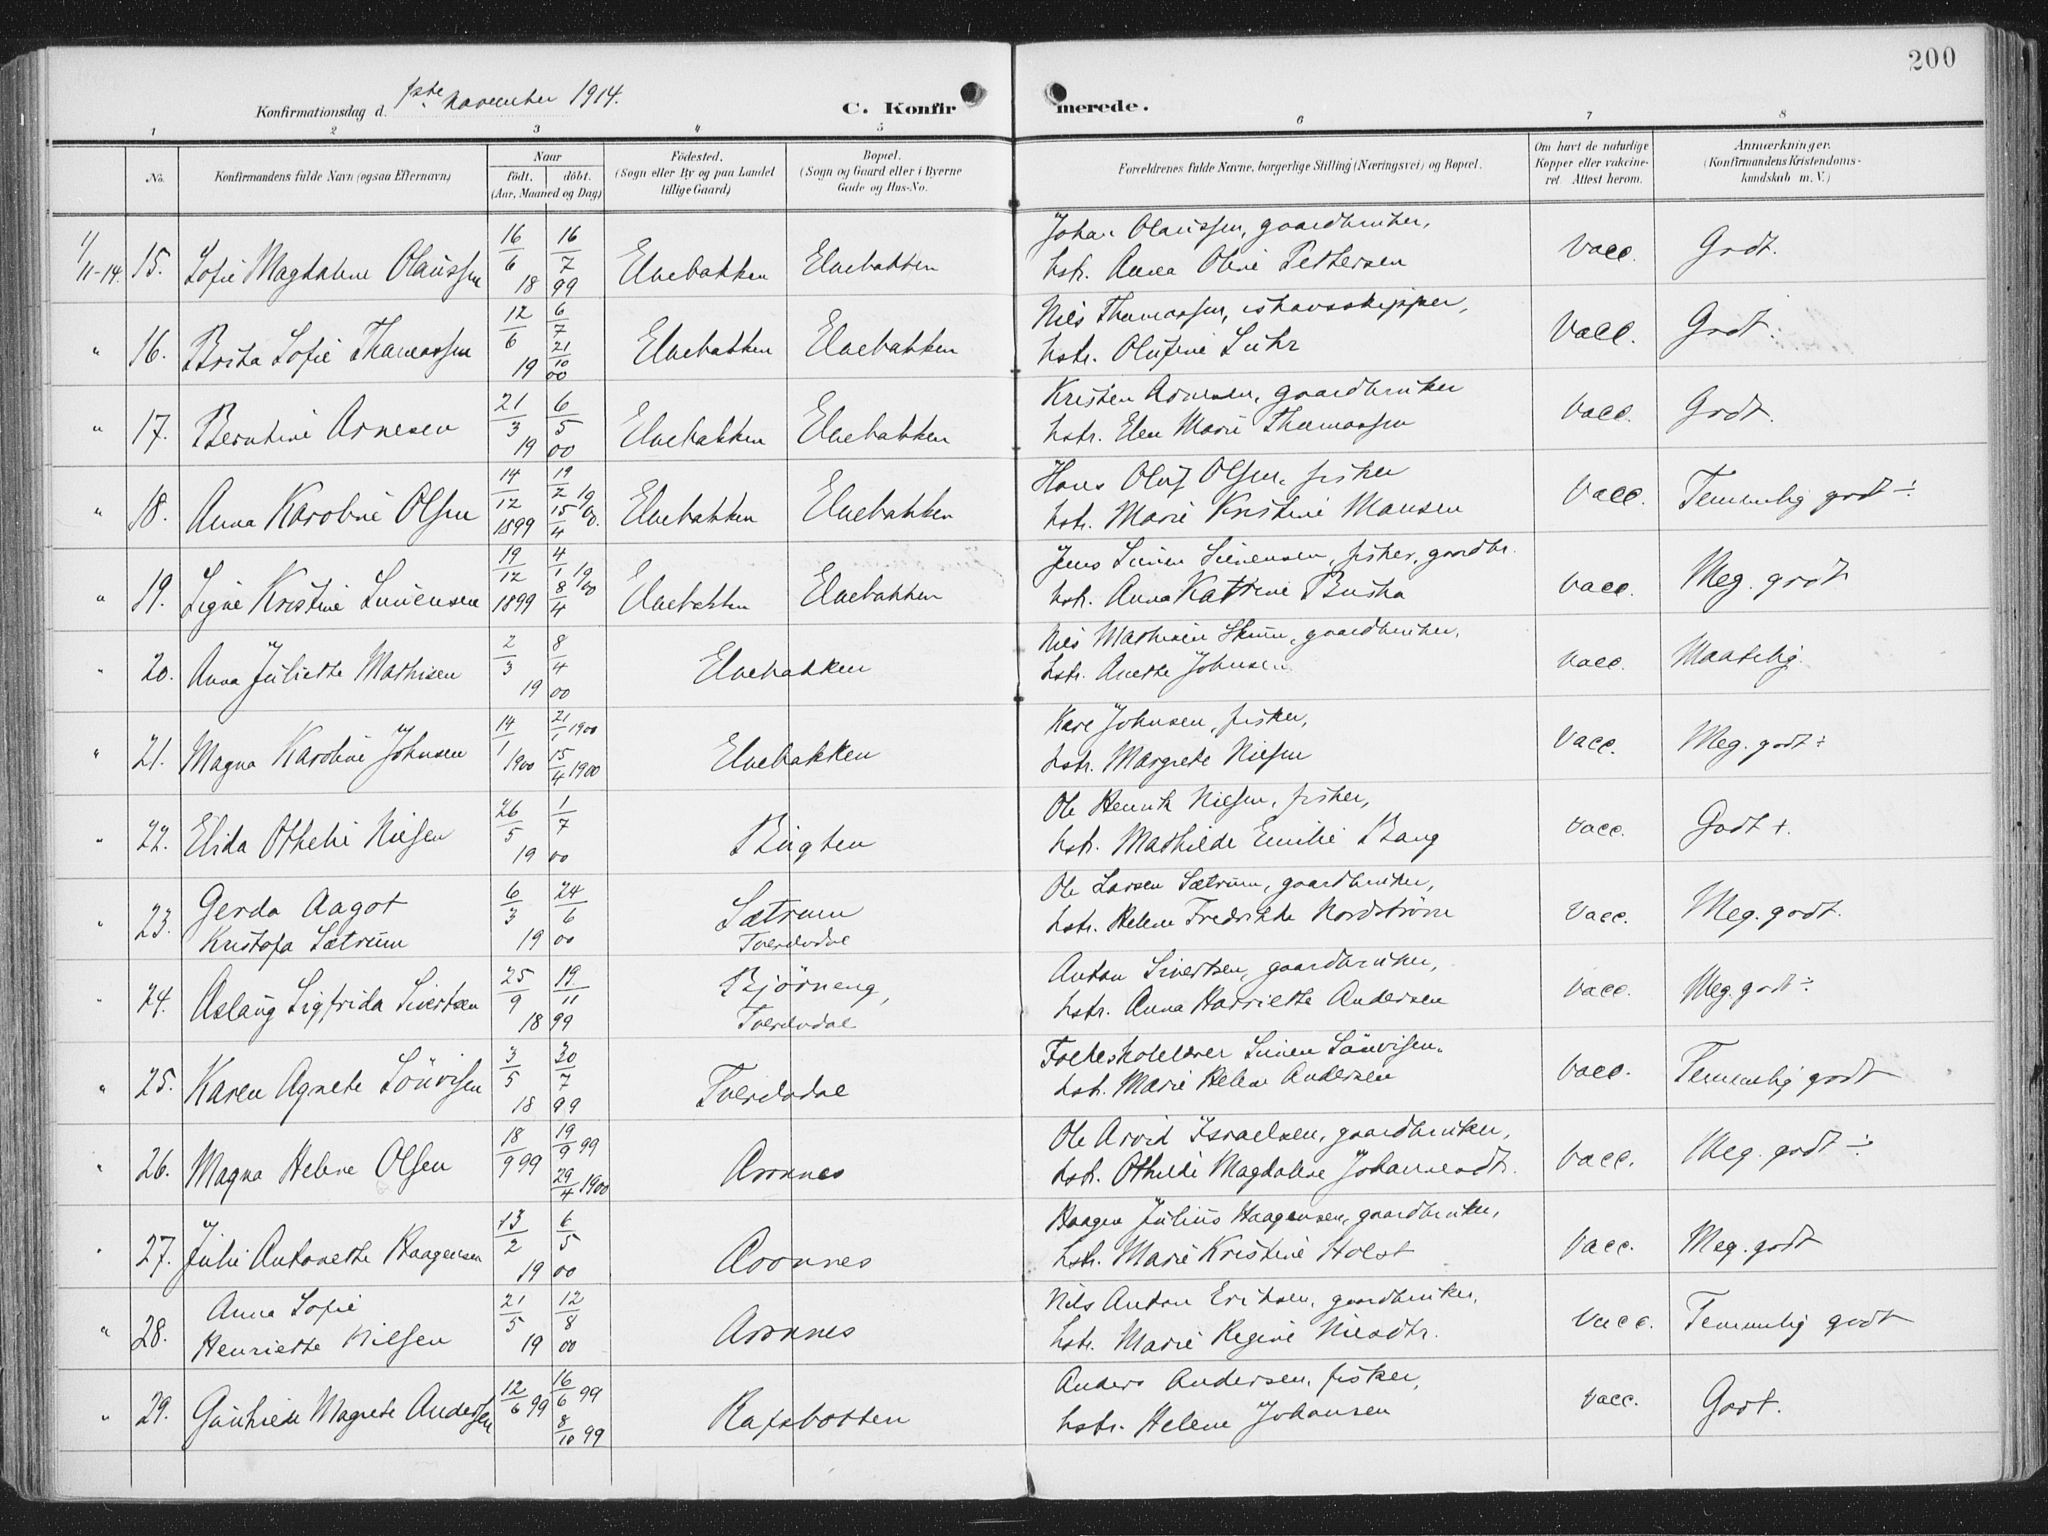 200
Konfirmationsdag d. 1ste November 1914.
C. Konfirmerede.
1 2 3 4 5 6 7 8
No.
Konfirmandens fulde Navn (ogsaa Efternavn)
Naar
født. döbt.
(Aar, Maaned og Dag)
Födested.
(Sogn eller By og paa Landet
tillige Gaard)
Bopæl.
(Sogn og Gaard eller i Byerne
Gade og Hus-No.
Forældrenes fulde Navne, borgerlige Stilling (Næringsvei) og Bopæl.
Om havt de naturlige
Kopper eller vakcine-
ret. Attest herom.
Anmærkninger.
(Konfirmandens Kristendoms-
kundskab m. V.)
1/11-14. 15. Sofie Magdalene Olaussen 16/6 16/7 1899 Elvebakken Elvebakken Johan Olaussen, gaardbruker,
hstr. Anna Oline Pettersen vacc. Godt.
" 16. Brita Sofie Thomassen 12/6 6/7 21/10 1900 Elvebakken Elvebakken Nils Thomassen, ishavsskipper,
hstr. Olufine Suhr vacc. Godt.
" 17. Berntine Arnesen 21/3 6/5 1900 Elvebakken Elvebakken Kristen Arnesen, gaardbruker
hstr. Elen Marie Thomassen vacc. Godt.
" 18. Anna Karoline Olsen 14/12 1899 19/2 15/4 19/00. Elvebakken Elvebakken Hans Oluf Olsen, fisker
hstr. Marie Kristine Monsen vacc. Temmelig godt ÷
" 19. Signe Kristine Simensen 19/12 1899 4/1 8/4 19/00 Elvebakken Elvebakken Jens Simen Simensen, fisker, gaardbr.
hstr. Anna Katrine Buska vacc. Meg. godt
" 20. Anna Juliette Mathisen 2/3 8/4 1900 Elvebakken Nils Mathisen Skum, gaardbruker,
hstr. Anette Johnsen vacc. Maatelig.
" 21. Magna Karoline Johnsen 14/1 1900 21/1 1900 15/4 1900 Elvebakken Kare Johnsen, fisker,
hstr. Margrete Nilsen vacc. Meg. godt ÷
" 22. Elida Othelie Nilsen 26/5 1/7 1900 Ole Henrik Nilsen, fisker,
hstr. Mathilde Emilie Bang vacc. Godt +.
" 23. Gerda Aagot
Kristofa Sætrum 6/3 24/6 1900 Sætrum
Tverelvdal Ole Larsen Sætrum, gaardbruker,
hstr. Helene Fredrikke Nordström vacc. Meg. godt.
" 24. Aslaug Sigfrida Sivertsen 25/9 19/11 1899 Bjørneng,
Tverelvdal Anton Sivertsen, gaardbruker,
hstr. Anna Harriette Andersen vacc. Meg. godt ÷
" 25. Karen Agnete Sönvisen 3/5 30/7 1899 Tverelvdal Folkeskolelærer Simen Sönvisen,
hstr. Marie Helene Andersen vacc. Temmelig godt
" 26. Magna Helene Olsen 18/9 99 19/9 99 29/4 1900 Aronnes Ole Arvid Israelsen, gaardbruker,
hstr. Othilde Magdalene Johannesdt. vacc. Meg. godt ÷
" 27. Julie Antonette Haagensen 13/2 6/5 1900 Aronnes Haagen Julius Haagensen, gaardbruker,
hstr. Marie Kristine Holst vacc. Meg. godt
" 28. Anna Sofie
Henriette Nilsen 21/5 12/8 1900 Aronnes Nils Anton Eriksen, gaardbruker,
hstr. Marie Regine Nilsdtr. vacc. Temmelig godt
" 29. Gunhild Magrete Andersen 12/6 99 16/6 99 8/10 99 Rafsbotten Anders Andersen, fisker,
hstr. Helene Johansen vacc. Godt.